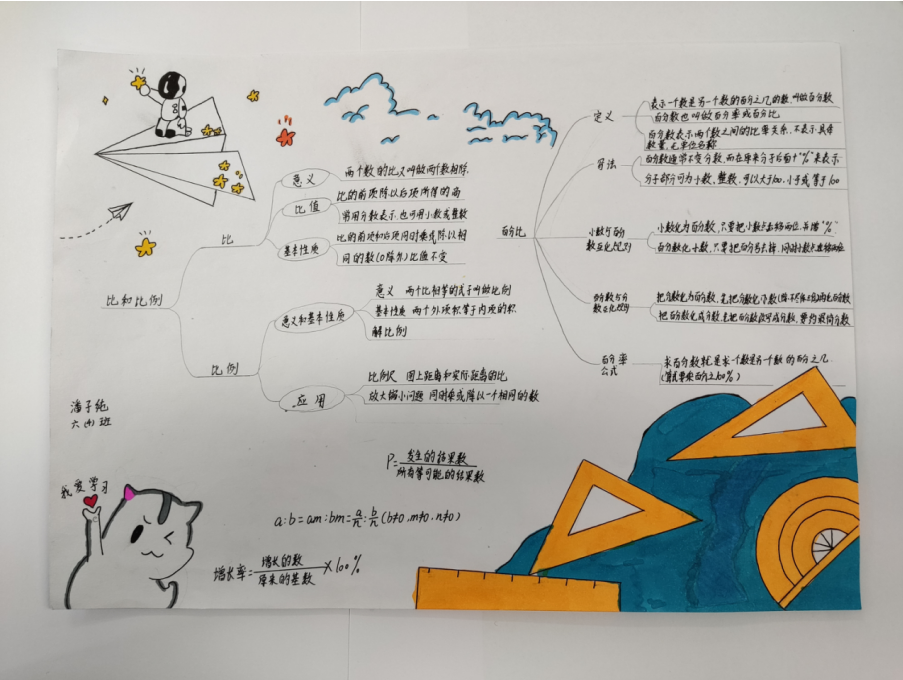 比和比例
比
意义
两个数的比又叫做两个数相除.
比值
比的前项除以后项所得的商
常用分数表示,也可用小数或整数
基本性质
比的前项和后项同时乘或除以相
同的数(0除外)比值不变
比例
意义和基本性质
意义 两个比相等的式子叫做比例
基本性质 两个外项积等于内项的积
解比例
应用
比例尺 图上距离和实际距离的比
放大缩小问题 同时乘或除以一个相同的数
百分比
定义
表示一个数是另一个数的百分之几的数,叫做百分数
百分数也叫做百分率或百分比
百分数表示两个数之间的比率关系,不表示具体
数量,无单位名称
写法
百分数通常不变分数,而在原来分子后面+"%"来表示
分子部分可为小数,整数,可以大于100,小于或等于100
小数与百分
数互化规则
小数化为百分数,只要把小数点右移两位,并增"%"
百分数化小数,只要把百分号去掉,同时小数点左移两位
分数化为百分数,先把分数化小数
把百分数化成分数,先把百分数改写成分数,要约最简分数
百分率
公式
求百分数就是求一个数是另一个数的百分之几
潘子纯
六(4)班
我爱学习
P=发生的结果数/所有等可能的结果数
a:b=am:bm=a/n:b/n(b≠0,m≠0,n≠0)
增长率=增长的数/原来的基数×100%